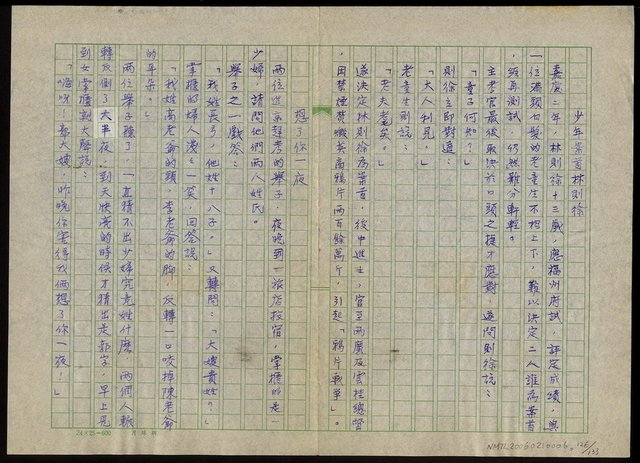 少年案首林則徐
嘉慶二年，林則徐十三歲，應福州府試，評定成績，與
一位滿頭白髮的老童生不相上下，難以決定二人誰為案首
經再測試，仍然難分軒輊。
主考官最後取決於口頭之捷才應對，遂問則徐說：
「童子何知？」
則徐立即對道：
「大人利見。」
老童生則說：
「老夫耄矣。」
遂決定林則徐為案首，後中進士，官至兩廣及雲桂總督
，因禁煙焚燬英商鴉片兩百餘萬斤，引起「鴉片戰爭」。
想了你一夜
兩位進京趕考的舉子，夜晚到一旅店投宿，掌櫃的是一
少婦，請問他們兩人姓氏。
舉子之一戲答：
「我姓長弓，他姓十八子。」又轉問：「大嫂貴姓。」
掌櫃的婦人淺淺一笑，回答說：
「我姓高老爺的頭，李老爺的脚，反轉一口咬掉陳老爺
的耳朵。」
兩位舉子聽了，一直猜不出少婦究竟姓什麼，兩個人輾
轉反側了大半夜，到天快亮的時候才猜出是郭字，早上見
到女掌櫃就大聲說：
「嗨呀！郭大嫂，昨晚你害得我倆想了你一夜！」
24×25=600
NMTL20050210006
126/133